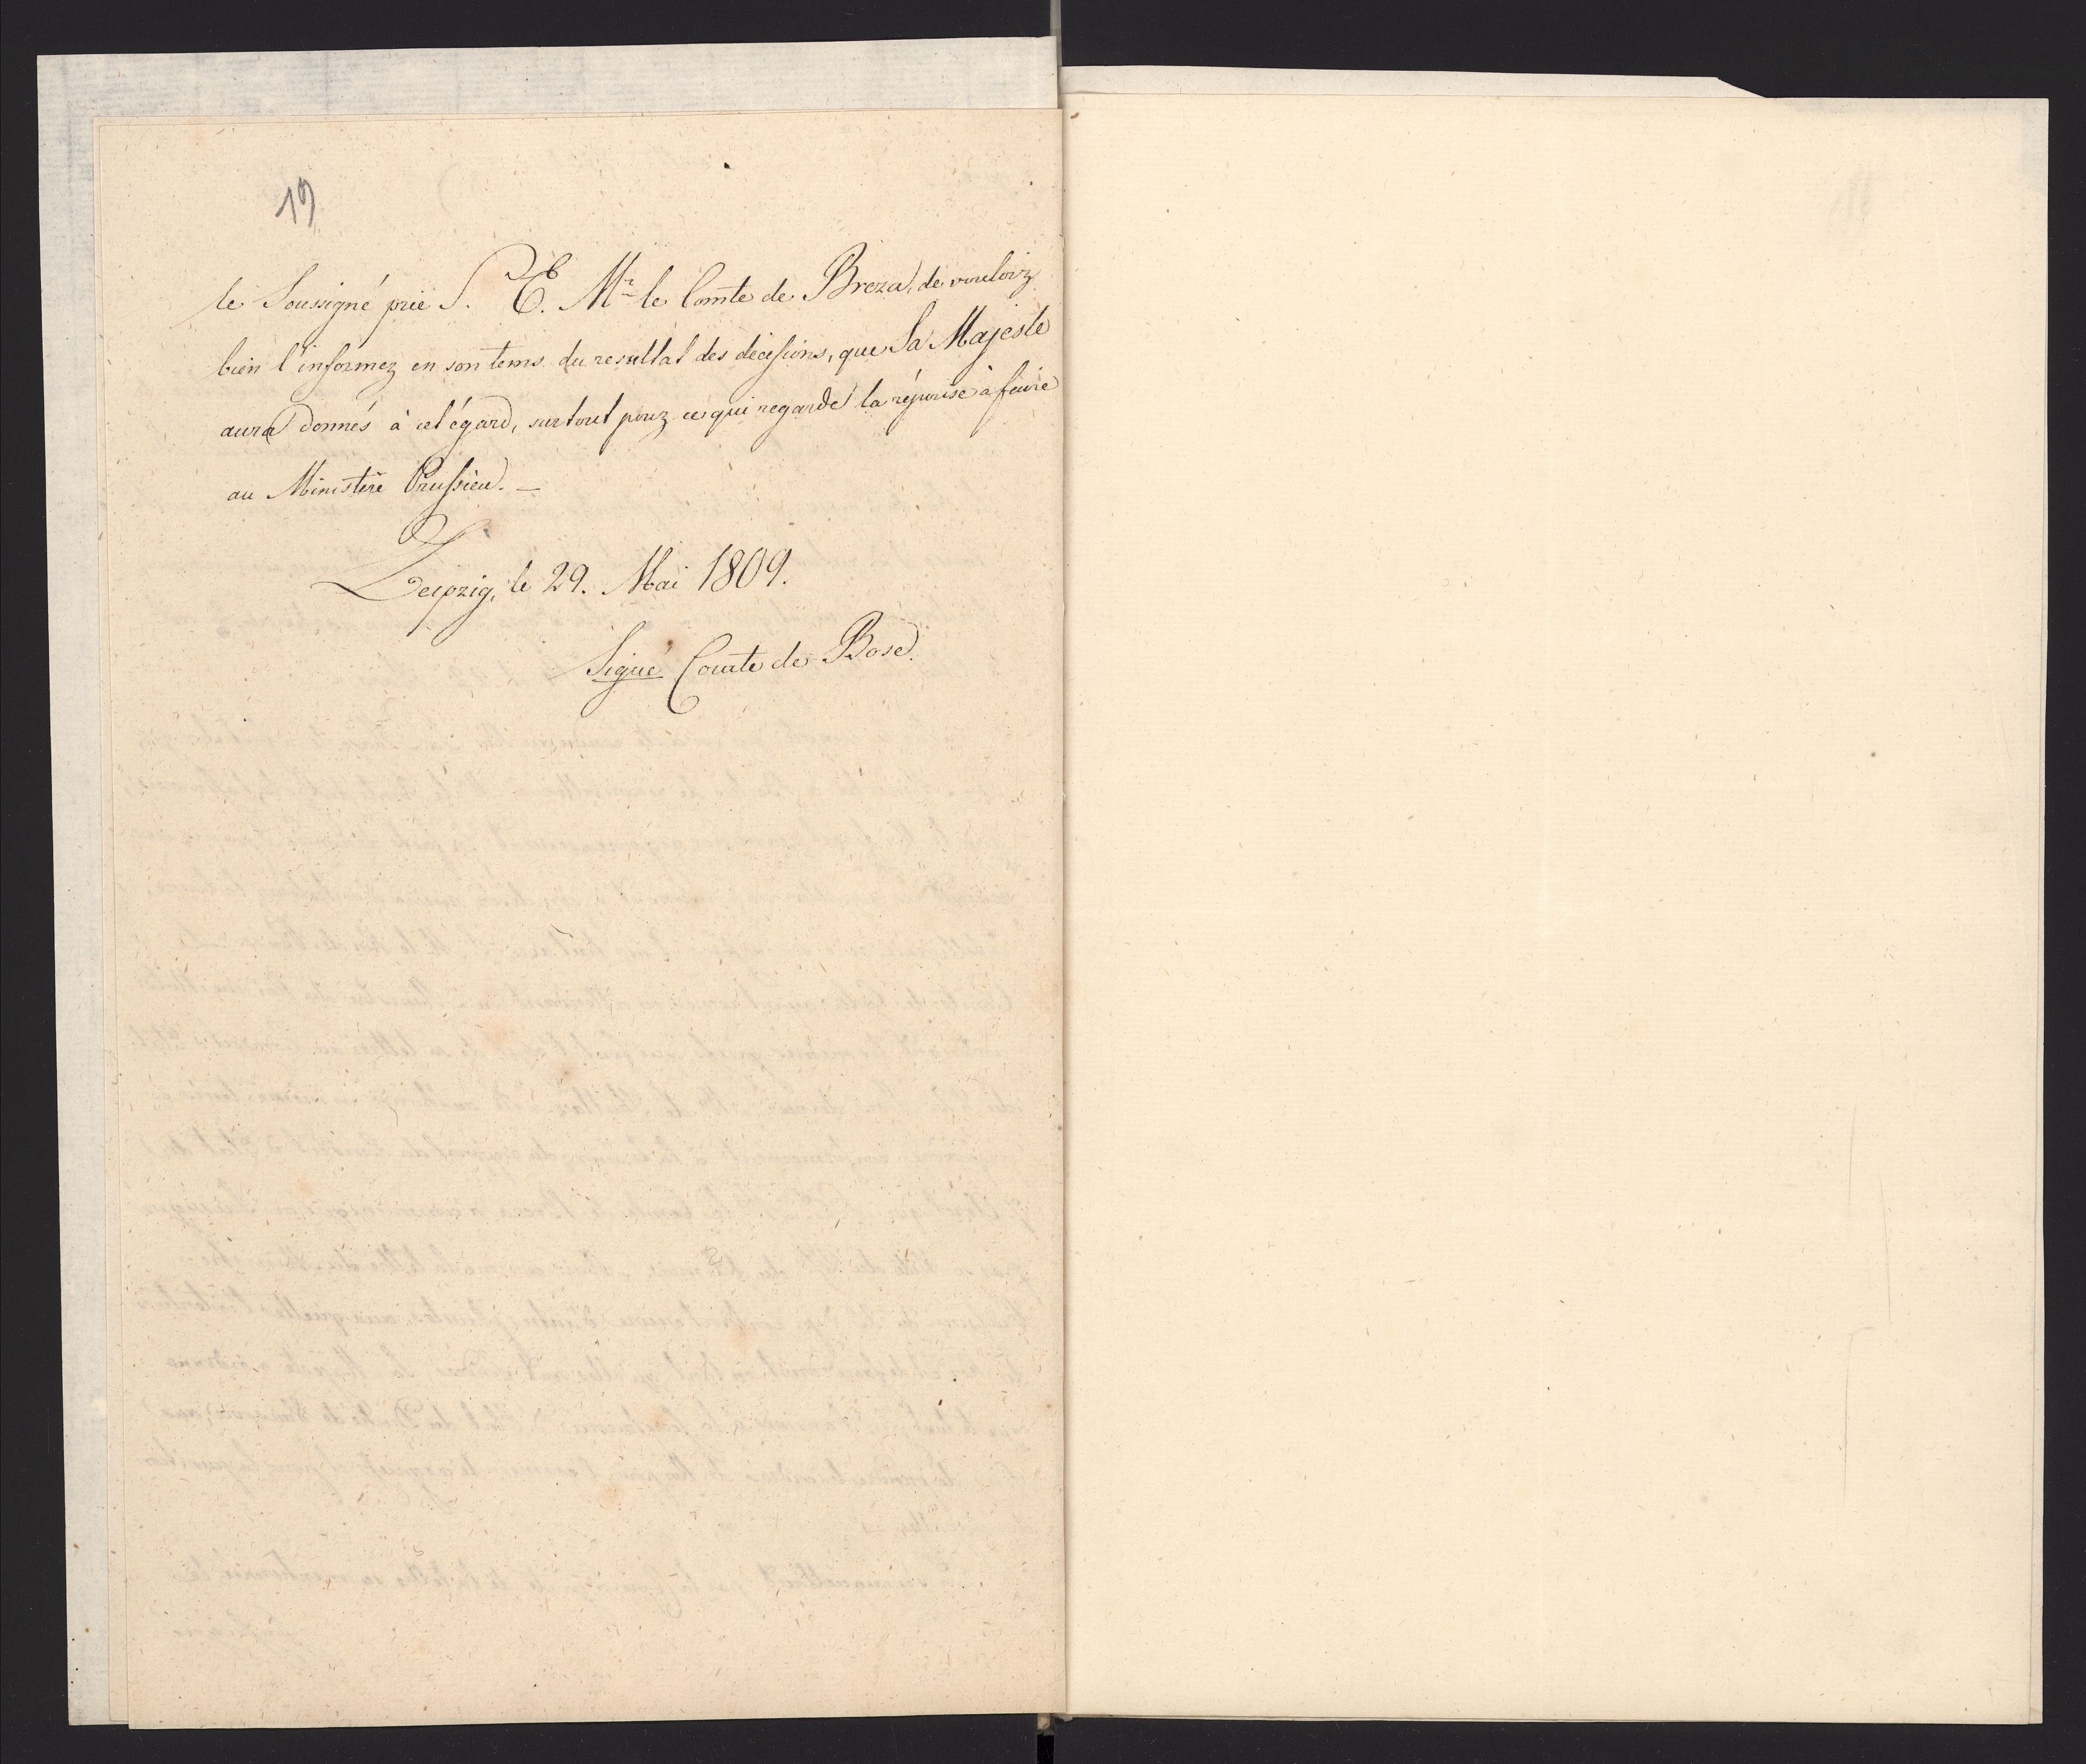 19
le Soussigné prie S. E. Mr le Comte de Breza, de vouloir
bien l'informer en son tems du resultat des decisions, que Sa Majesté
aura donnés à cet égard, surtout pour ce qui regarde la réponse à faire
au Ministère Prussien. —
Leipzig, le 29. Mai 1809.
Signé Comte de Bose.